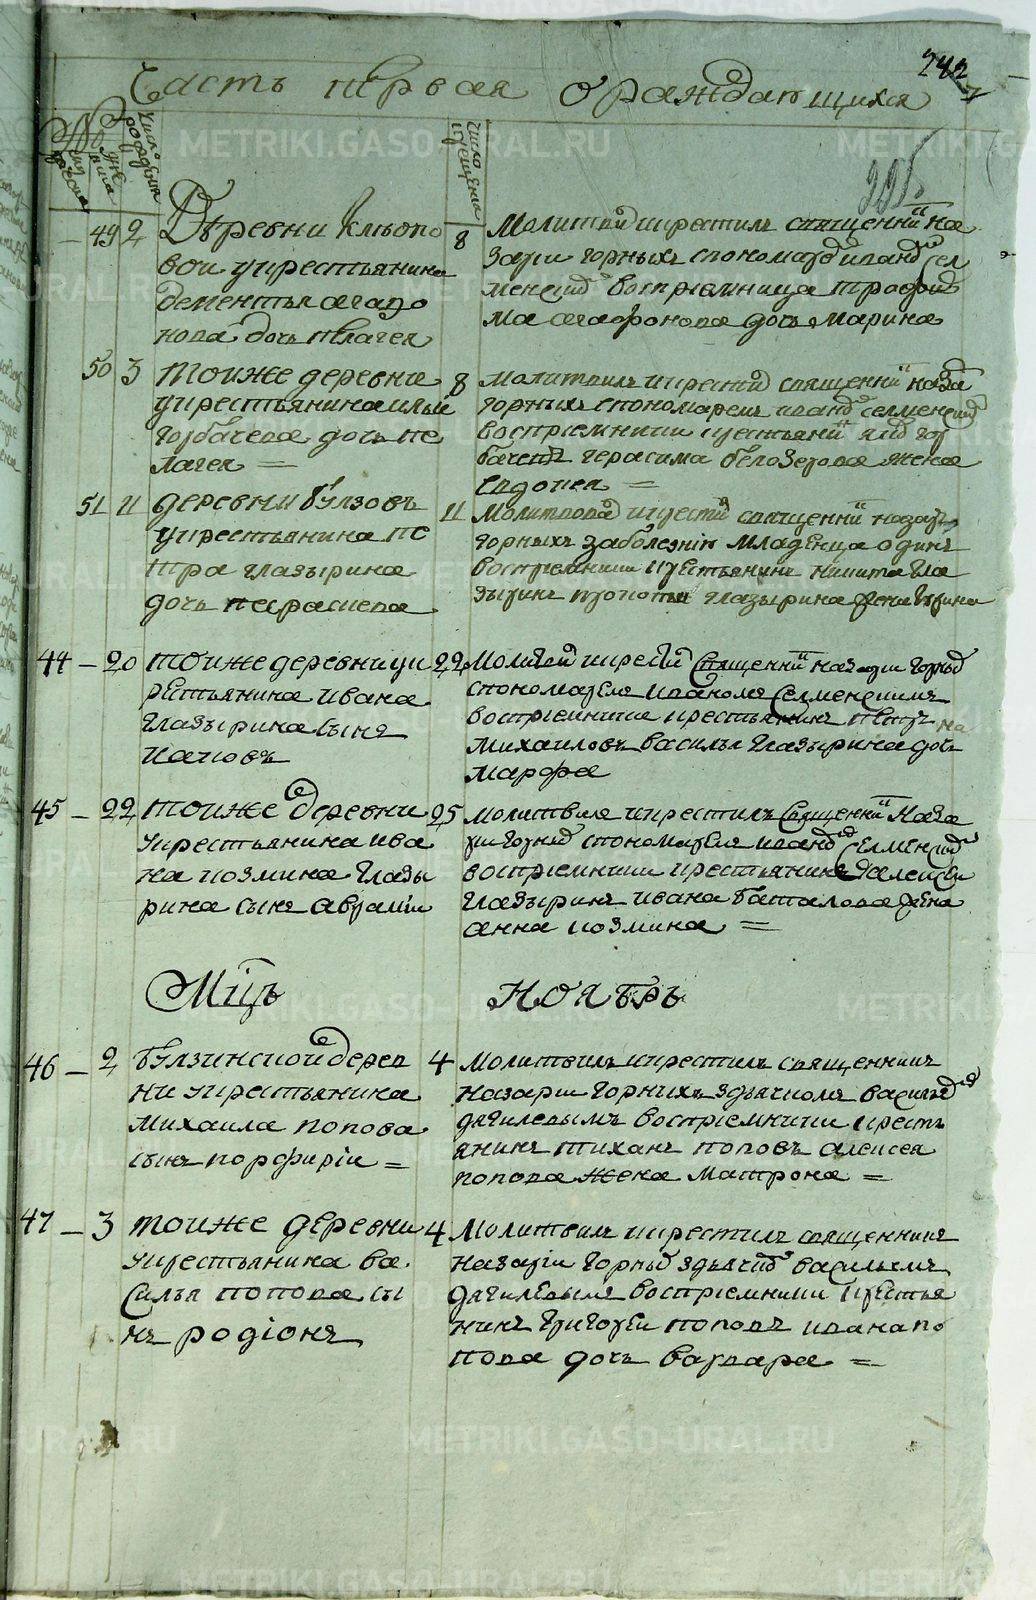 242
Часть первая о раждающихся
225
49 2 Деревни Клюпо
вои укрестьянина
Дементья Агафо
нова дочь Пелагея
8 Молитвилъ и крестилъ священникъ На
зари Горныхъ спономаремъ Иваномъ Сел
менскимъ восприемница Трофи
ма Агафонова дочь Марина
50 3 Тоиже деревни
укрестьянина Ильи
Горбачева дочь Пе
лагея =
8 Молитвилъ и крестилъ священникъ Наза
Горныхъ спономаремъ Иваномъ Селменским
восприемники крестьянинъ Яков Гор
бачевъ Герасима Белозерова жена
Евдокея =
51 11 Деревни Булзовъ
укрестьянина Пе
тра Глазырина
дочь Парасиева
11 Молитвовалъ и крестилъ священникъ Назаръ
Горныхъ заболезнiю младенца одинъ
восприемники крестьянинъ Никита Гла
зыринъ Прокопья Глазырина жена Ирина
44 – 20 Тоиже деревни ук
рестьянина Ивана
Глазырина сынъ
Иаковъ
22 Молитвилъ и крестилъ священникъ Назари Горныхъ
спономаремъ Иваномъ Селменскимъ
восприемники крестьянинъ Петръ
Михаиловъ Василья Глазырина дочь
Марфа
45 – 22 Тоиже деревни
укрестьянина Ива
на Козмина Глазы
рина сынъ Аврамiи
25 Молитвилъ и крестилъ священникъ Наза
рии Горныхъ спономаремъ Иваномъ Селменскимъ
восприемники крестьянинъ Далексеи
Глазыринъ Ивана Баталова жена
Анна Козмина =
Мцъ Ноябрь
46 – 2 Булзинскои дерев
ни укрестьянина
Михаила Попова
сынъ Порфирiи =
4 Молитвилъ и крестилъ священникъ
Назарiи Горныхъ здьячкомъ Васильемъ
Дягилевымъ восприемники кресть
янинъ Тиханъ Поповъ Алексея
Попова жена Матрона =
47 – 3 Тоиже деревни
укрестьянина Ва
силья Попова сы
нъ Родiонъ
4 Молитвилъ и крестилъ священникъ
Назарiи Горныхъ здьячкомъ Васильемъ
Дягилевымъ восприемники крестья
нинъ Григореи Поповъ Ивана По
пова дочь Варвара =
METRIKI.GASO-URAL.RU